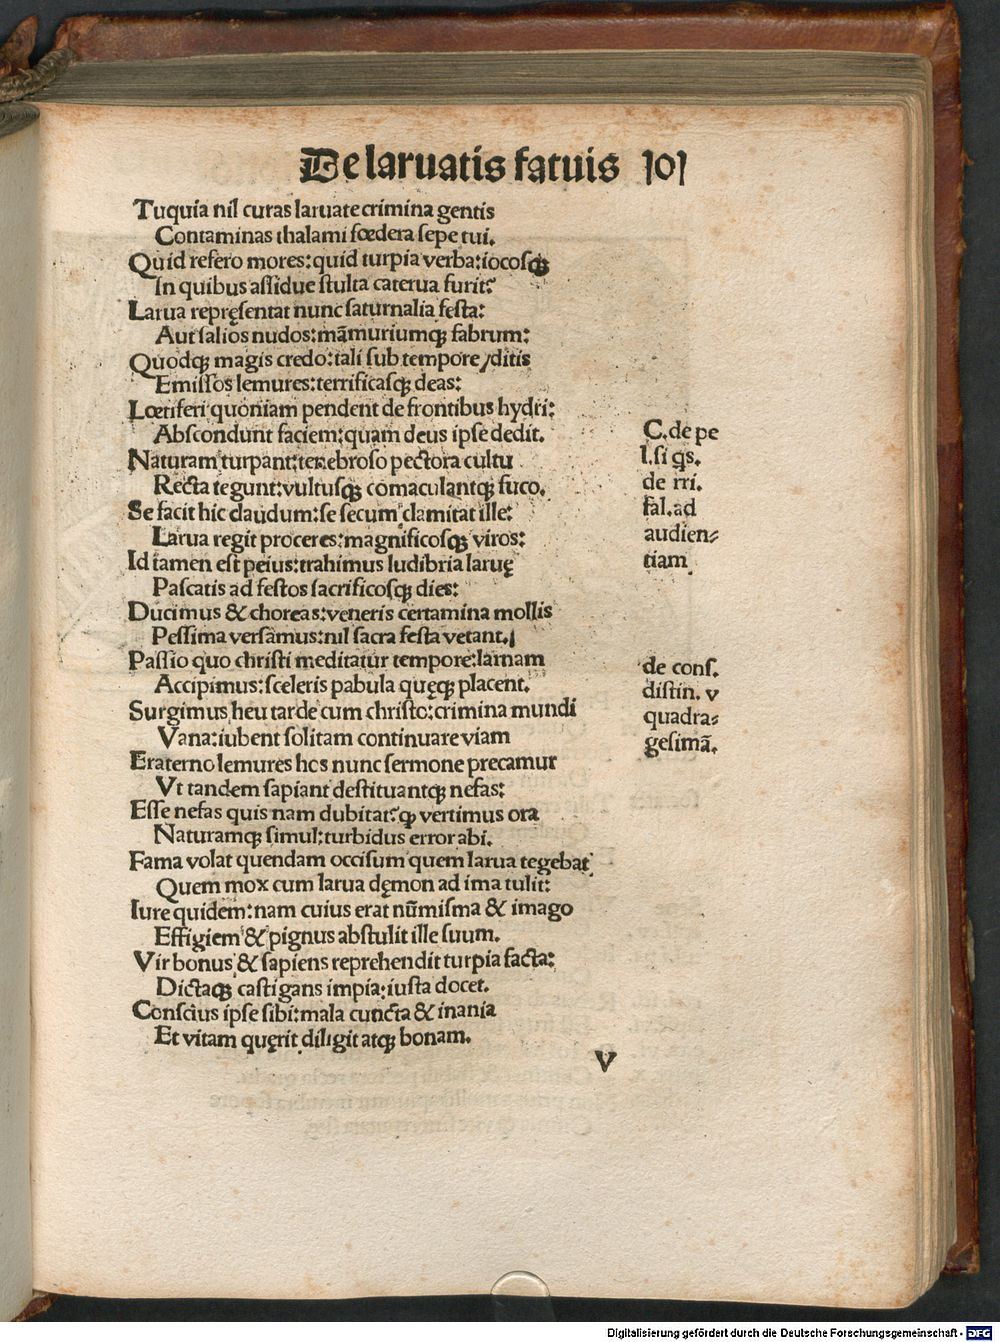 De laruatis fatuis 101
Tu quia nil curas laruate crimina gentis
Contaminas thalami fœdera sepe tui.
Quid refero mores: quid turpia verba: iocosqꝫ
In quibus assidue stulta caterua furit?
Larua repręsentat nunc saturnalia festa:
Aut salios nudos: mãmuriumqꝫ fabrum:
Quodqꝫ magis credo: tali sub tempore / ditis
Emissos lemures: terrificasqꝫ deas:
Lœtiferi quoniam pendent de frontibus hydri:
Abscondunt faciem: quam deus ipse dedit.
Naturam turpant: tenebroso pectora cultu
Recta tegunt: vultusqꝫ comaculantqꝫ fuco.
Se facit hic claudum: se secum clamitat ille:
Larua regit proceres: magnificosqꝫ viros:
Id tamen est peius: trahimus ludibria laruę
Pascatis ad festos sacrificosqꝫ dies:
Ducimus & choreas: veneris certamina mollis
Pessima versamus: nil sacra festa vetant.
Passio quo christi meditatur tempore: larnam
Accipimus: sceleris pabula quęqꝫ placent.
Surgimus heu tarde cum christo: crimina mundi
Vana: iubent solitam continuare viam
Eraterno lemures hos nunc sermone precamur
Vt tandem sapiant destituantqꝫ nefas:
Esse nefas quis nam dubitat? qꝫ vertimus ora
Naturamqꝫ simul: turbidus error abi.
Fama volat quendam occisum quem larua tegebat
Quem mox cum larua dęmon ad ima tulit:
Iure quidem: nam cuius erat nũmisma & imago
Effigiem & pignus abstulit ille suum.
Vir bonus & sapiens reprehendit turpia facta:
Dictaqꝫ castigans impia: iusta docet.
Conscius ipse sibi: mala cuncta & inania
Et vitam quęrit diligit atqꝫ bonam.
V
C. de pe
l. si qs.
de rri.
fal. ad
audien⸗
tiam
de cons.
distin. v
quadra⸗
gesimã.
Digitalisierung gefördert durch die Deutsche Forschungsgemeinschaft - DFG